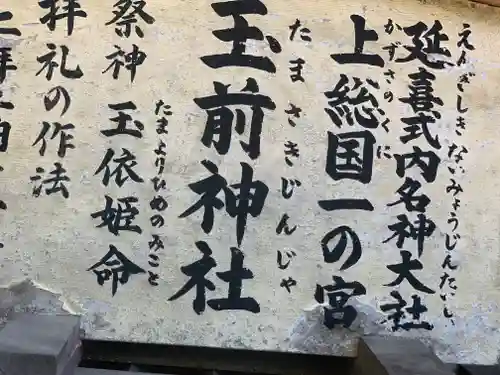 延喜式内名神大社
えんぎしきないみょうじんたいしゃ
上総国一の宮
かずさのくに
玉前神社
たまさきじんじゃ
祭神 玉依姫命
たまよりひめのみこと
拝礼の作法
二拝